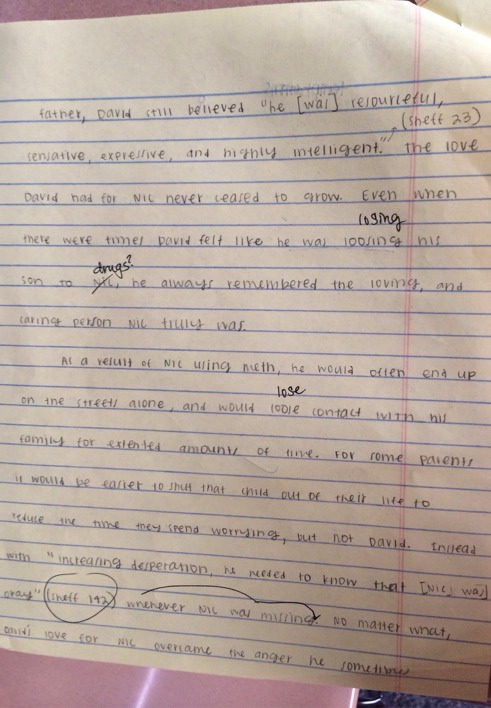 father, David still believed "he [was] resourceful,
(Sheff 23)
sensative, expressive, and highly intelligent." The love
David had for Nic never ceased to grow. Even when
losing
there were times David felt like he was loosing his
drugs?
son to Nic, he always remembered the loving, and
caring person Nic trully was.
As a result of Nic using meth, he would often end up
lose
on the streets alone, and would loose contact with his
family for extented amounts of time. For some parents
it would be easier to shut that child out of their life to
reduse the time they spend worrying, but not David. Instead
with "increasing desperation, he needed to know that [Nic] was]
okay" (Sheff 192) whenever Nic was missing. No matter what,
David's love for Nic overcame the anger he sometime